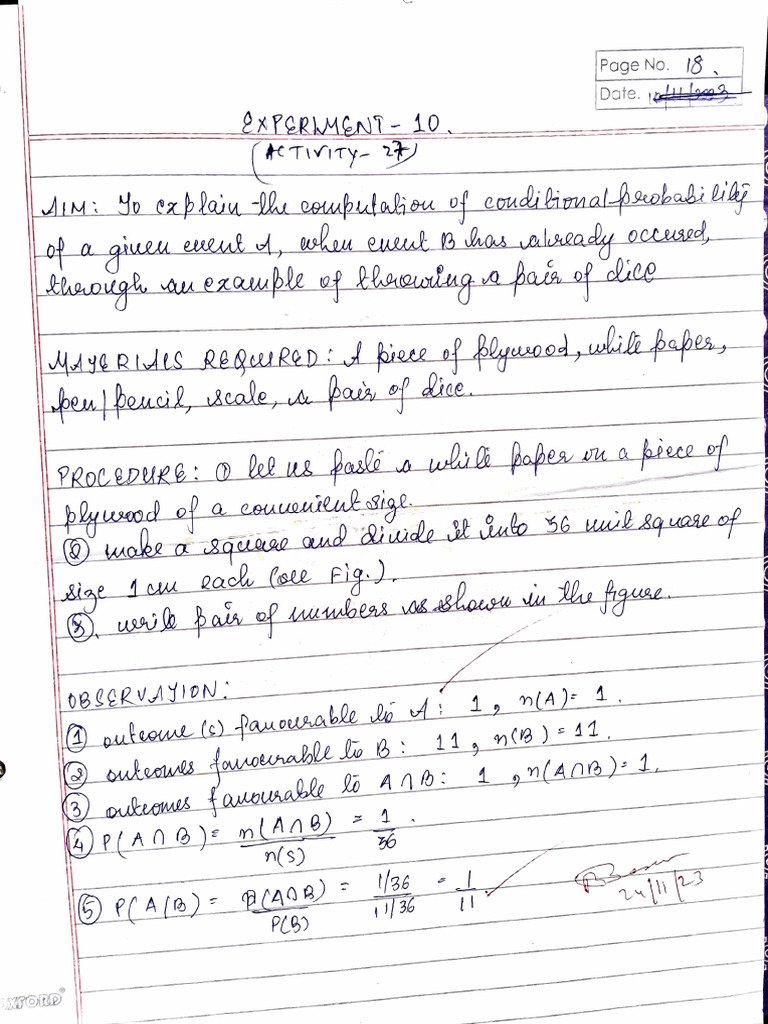 Page No. 18.
Date. 10/11/2023
EXPERIMENT - 10.
(ACTIVITY - 27)
AIM: To explain the computation of conditional probability
of a given event A, when event B has already occured,
through an example of throwing a pair of dice
MATERIALS REQUIRED: A piece of plywood, white paper,
pen/pencil, scale, a pair of dice.
PROCEDURE: ① let us paste a white paper on a piece of
plywood of a convenient size.
② make a square and divide it into 36 unit square of
size 1 cm each (see Fig.).
③. write pair of numbers as shown in the figure.
OBSERVATION:
① outcome (s) favourable to A: 1, n(A) = 1.
② outcomes favourable to B: 11, n(B) = 11.
③ outcomes favourable to A∩B: 1, n(A∩B) = 1.
④ P(A∩B) = n(A∩B)/n(S) = 1/36.
⑤ P(A/B) = P(A∩B)/P(B) = 1/36/11/36 = 1/11.
24/11/23
OXFORD